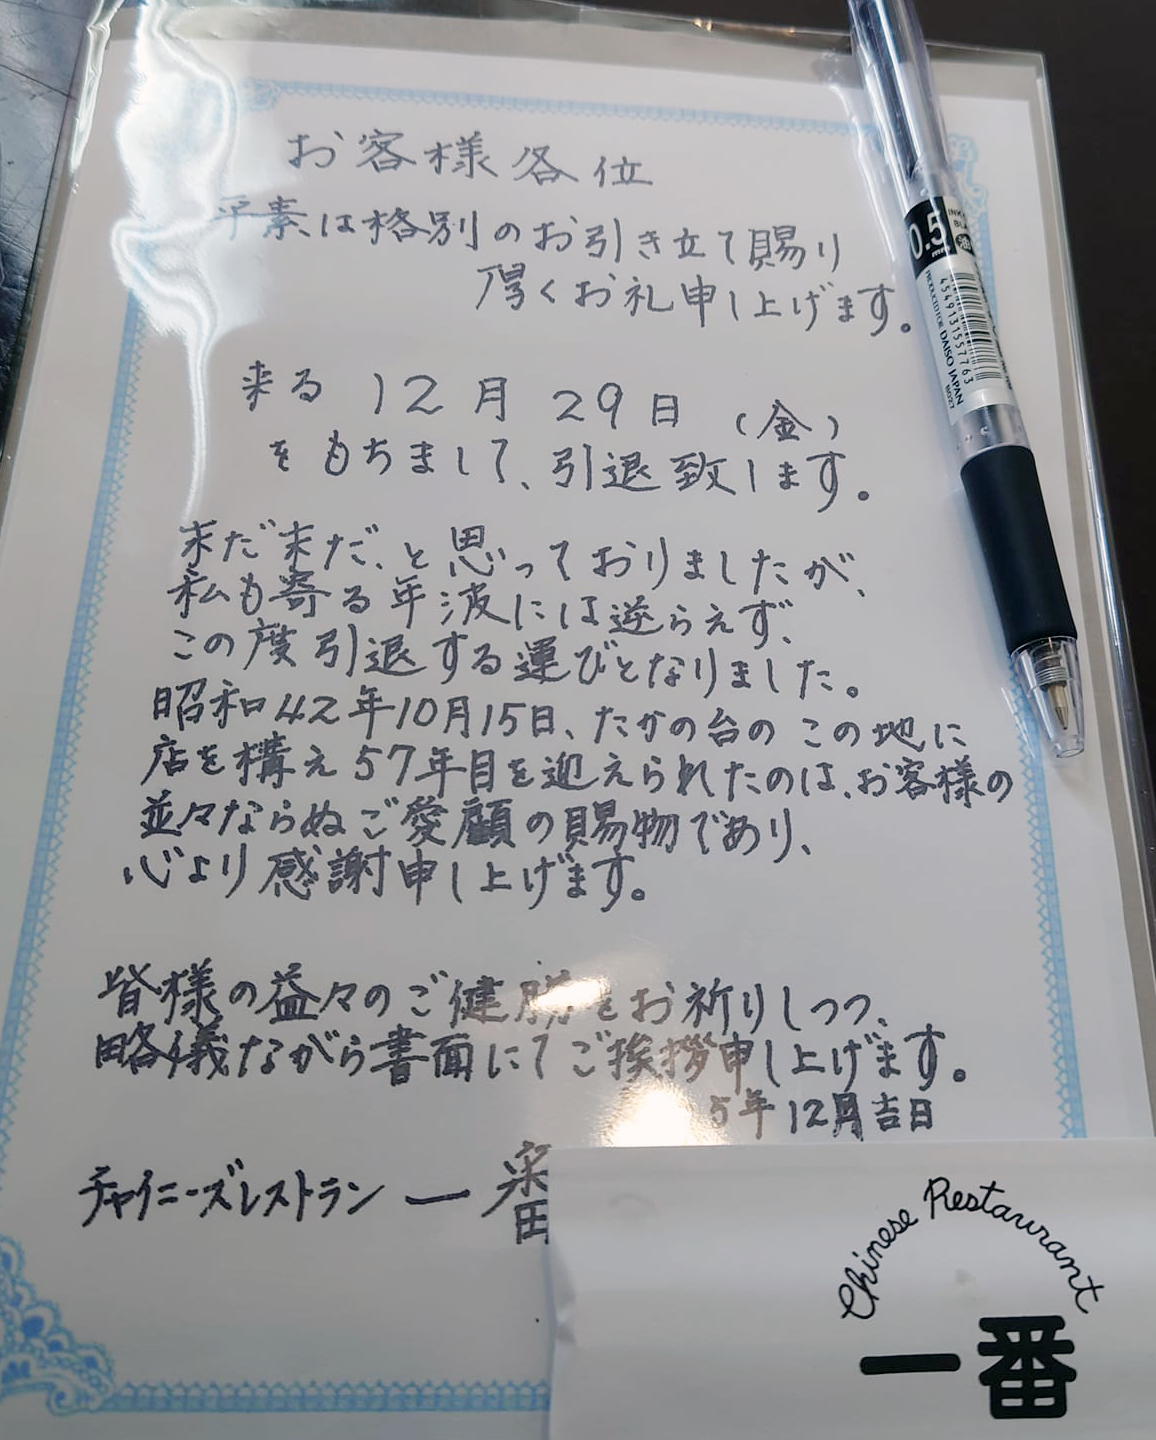 お客様各位
平素は格別のお引き立て賜り
厚くお礼申し上げます。
来る 12月29日（金）
をもちまして、引退致します。
末だ末だ、と思っておりましたが、
私も寄る年波には逆らえず、
この度引退する運びとなりました。
昭和42年10月15日、たかの台のこの地に
店を構え57年目を迎えられたのは、お客様の
並々ならぬご愛顧の賜物であり、
心より感謝申し上げます。
皆様の益々のご健勝をお祈りしつつ、
略儀ながら書面にてご挨拶申し上げます。
5年12月吉日
チャイニーズレストラン 一番
Chinese Restaurant
一番
0.5
mm
油
4549131557763
PRODUCED FOR DAISO JAPAN